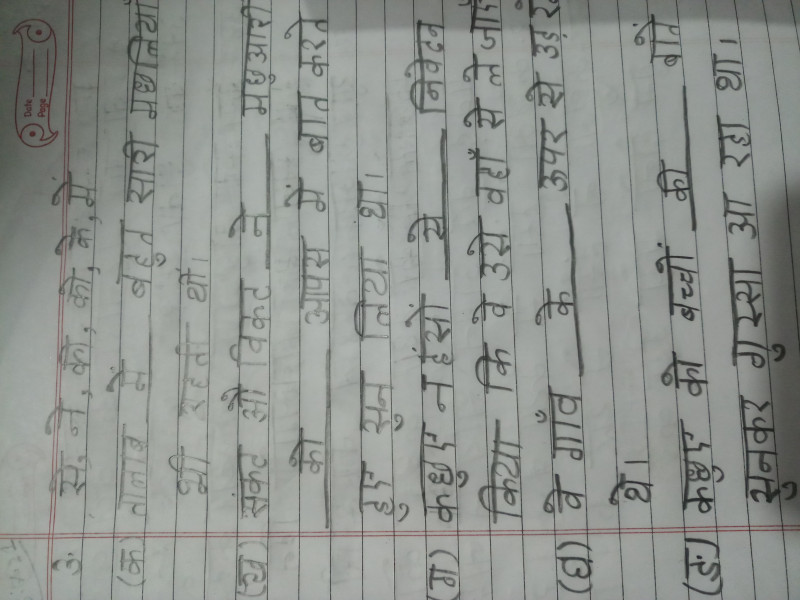 Date
Page
3. से, ने, का, की, को, के, में
(क) तालाब में बहुत सारी मछलियाँ
भी रहती थीं।
(ख) संकट औ विकट ने मछुआरों
को आपस में बात करते
हुए सुन लिया था।
(ग) कछुए न हंसों से निवेदन
किया कि वे उसे वहाँ से ले जाएँ
(घ) वे गाँव के ऊपर से उड़ रहे
थे।
(ङ) कछुए को बच्चों की बातें
सुनकर गुस्सा आ रहा था।